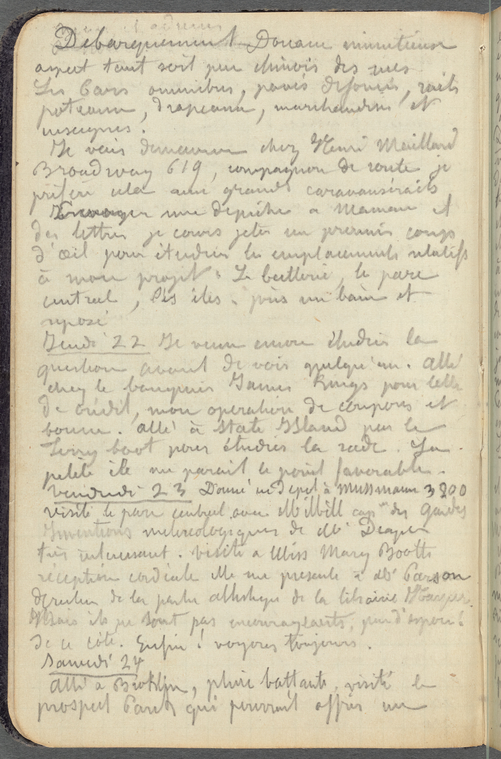 Débarquement. Douane minutieuse
aspect tant soit peu chinois des rues
Les Cars omnibus, pavés défoncés, rails
poteaux, drapeaux, marchandises et
enseignes.
Je vais demeurer chez Henri Maillard
Broadway 619, compagnon de route je
préfère cela aux grands caravansérails
Envoyer une dépêche à Maman et
des lettres je cours jeter un premier coup
d'œil pour étudier les emplacements relatifs
à mon projet. La batterie, le parc
central, les îles. pris un bain et
reposé
Jeudi 22 Je veux encore étudier la
question avant de voir quelqu'un. Allé
chez le banquier James Kings pour lettre
de crédit, mon opération de coupons et
bourse. allé à State Island par le
ferry boot pour étudier la rade. La
petite île me parait le point favorable.
Vendredi 23 Donné un depot à Mussmann 3800
visité le parc central avec Mr Mill cap. des gardes
Inventions météorologiques de Mr Draper
très intéressant. visite à Miss Mary Booth
réception cordiale elle me présente à Mr Parson
directeur de la partie de la librairie
Mais ils ne sont pas encourageants, peu d'espoir
de ce côté. Enfin! voyons toujours.
Samedi 24
allé à Brooklyn, pluie battante, visité le
prospect Park qui pourrait offrir un